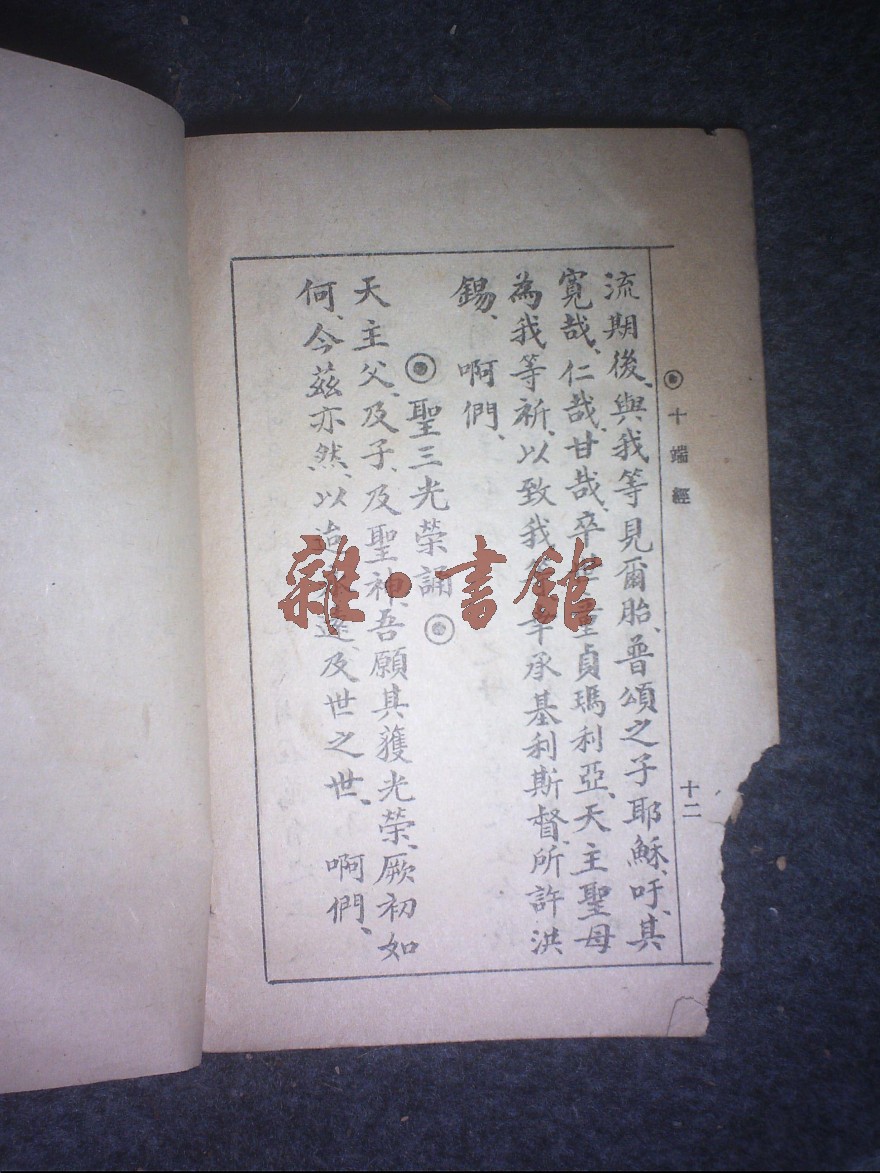 十端經
十二
流期後、與我等見爾胎、普頌之子耶穌、吁、其
寬哉、仁哉、甘哉、卒世童貞瑪利亞、天主聖母
為我等祈、以致我等幸承基利斯督、所許洪
錫、 啊們、
聖三光榮誦
天主父、及子、及聖神、吾願其獲光榮、厥初如
何、今茲亦然、以迨 遠、及世之世、 啊們、
雜·書館